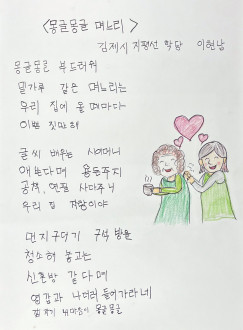 <몽글몽글 며느리>
김제시 지평선 학당 이현남
몽글몽글 부드러워
밀가루 같은 며느리는
우리 집에 올 때마다
이쁜 짓만 해
글씨 배우는 시어머니
애쓴다며 용돈주지
공책, 연필 사다주니
우리 집 자랑이야
먼지구덩기 구석 방을
청소해 놓고는
신혼방 같다며
영감과 나더러 들어가라네
내마음이 몽글몽글